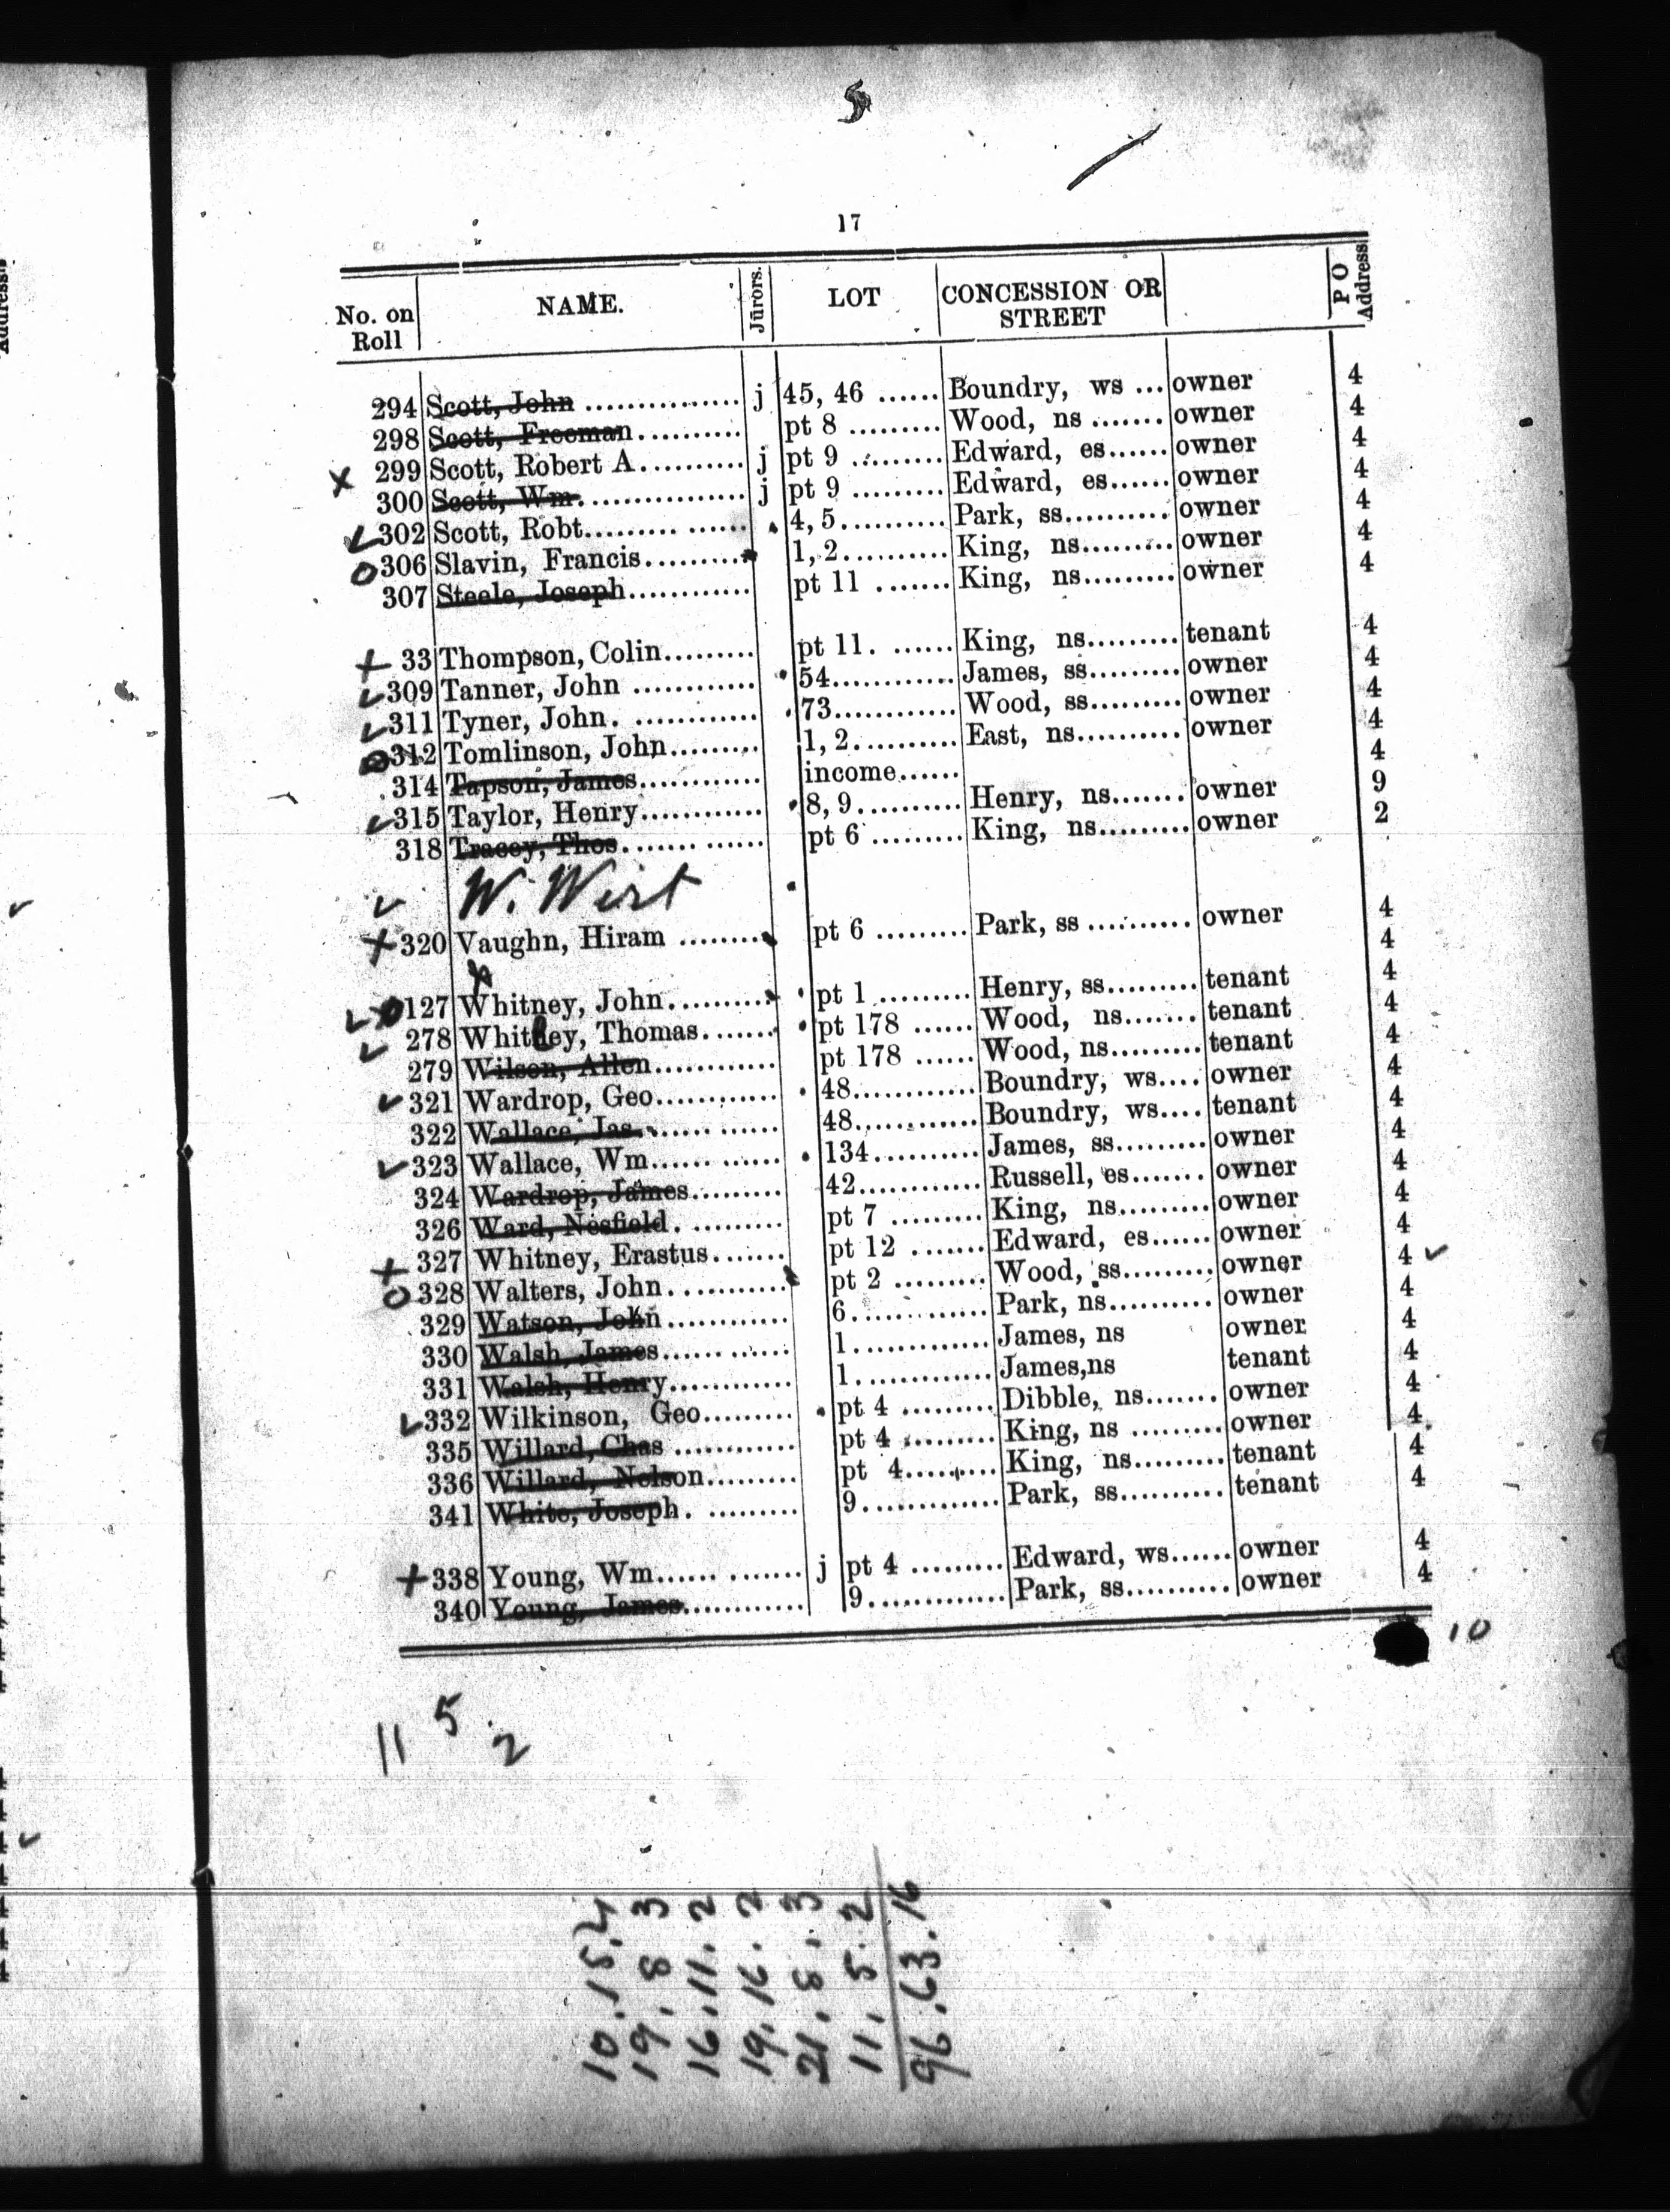 5
17
No. on Roll NAME. Jurors. LOT CONCESSION OR STREET P O Address
294 Scott, John ............... j 45, 46 ...... Boundry, ws ... owner 4
298 Scott, Freeman .......... pt 8 ......... Wood, ns ....... owner 4
x 299 Scott, Robert A .......... j pt 9 ......... Edward, es...... owner 4
300 Scott, Wm. ............... j pt 9 ......... Edward, es...... owner 4
✓ 302 Scott, Robt......... ...... 4, 5.......... Park, ss.......... owner 4
o 306 Slavin, Francis.......... 1, 2.......... King, ns......... owner 4
307 Steele, Joseph............ pt 11 ....... King, ns......... owner 4
+ 33 Thompson, Colin......... pt 11. ...... King, ns......... tenant 4
✓ 309 Tanner, John ............ 54............ James, ss......... owner 4
✓ 311 Tyner, John. ............ 73............ Wood, ss......... owner 4
o 312 Tomlinson, John......... 1, 2.......... East, ns.......... owner 4
314 Tapson, James............ income...... 4
✓ 315 Taylor, Henry............ 8, 9.......... Henry, ns....... owner 9
318 Tracey, Thos. ...... ...... pt 6 ......... King, ns......... owner 2
✓ W. Wirt
+ 320 Vaughn, Hiram ......... pt 6 ......... Park, ss .......... owner 4
4
x
✓ 127 Whitney, John.......... pt 1 ......... Henry, ss......... tenant 4
✓ 278 Whitney, Thomas....... pt 178 ...... Wood, ns....... tenant 4
279 Wilson, Allen............ pt 178 ...... Wood, ns......... tenant 4
✓ 321 Wardrop, Geo............ 48............ Boundry, ws.... owner 4
322 Wallace, Jas. ...... ...... 48............ Boundry, ws.... tenant 4
✓ 323 Wallace, Wm...... ...... 134.......... James, ss......... owner 4
324 Wardrop, James......... 42............ Russell, es....... owner 4
326 Ward, Nesfield. ......... pt 7 ......... King, ns......... owner 4
+ 327 Whitney, Erastus....... pt 12 ....... Edward, es...... owner 4
o 328 Walters, John............ pt 2 ......... Wood, ss......... owner 4 ✓
329 Watson, John............ 6............. Park, ns.......... owner 4
330 Walsh, James...... ...... 1............. James, ns owner 4
331 Walsh, Henry............ 1............. James,ns tenant 4
✓ 332 Wilkinson, Geo......... pt 4 ......... Dibble, ns....... owner 4
335 Willard, Chas ............ pt 4 ......... King, ns ......... owner 4
336 Willard, Nelson......... pt 4......... King, ns......... tenant 4
341 White, Joseph. ......... 9............. Park, ss.......... tenant 4
+ 338 Young, Wm...... ....... j pt 4 ......... Edward, ws...... owner 4
340 Young, James............ 9............. Park, ss.......... owner 4
10
11 5 2
10. 15. 4
19. 8 3
16. 11. 2
19. 16. 2
21. 8. 3
11. 5. 2
96. 63. 16
Address